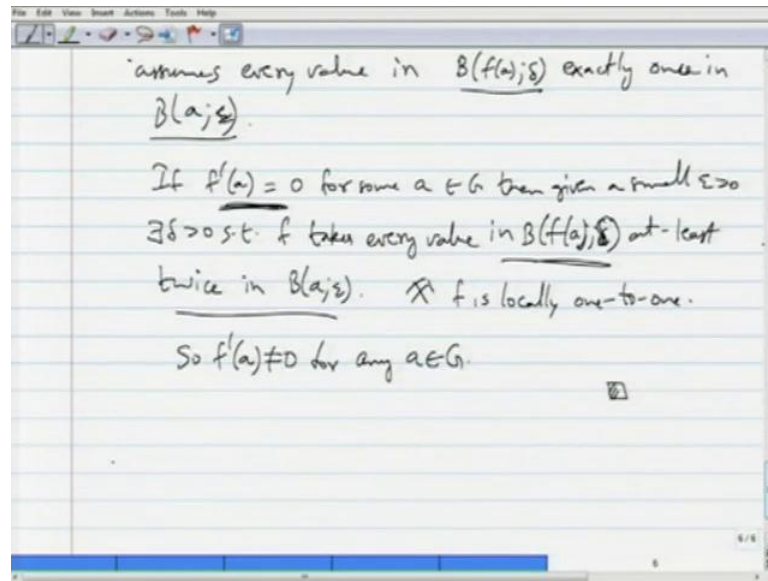 File Edit View Insert Actions Tools Help
assumes every value in B(f(a);δ) exactly once in
B(a;ε).
If f'(a) = 0 for some a ∈ G then given a small ε>0
∃δ>0 s.t. f takes every value in B(f(a);δ) at-least
twice in B(a;ε). ※ f is locally one-to-one.
So f'(a)≠0 for any a∈G.
6/6
6